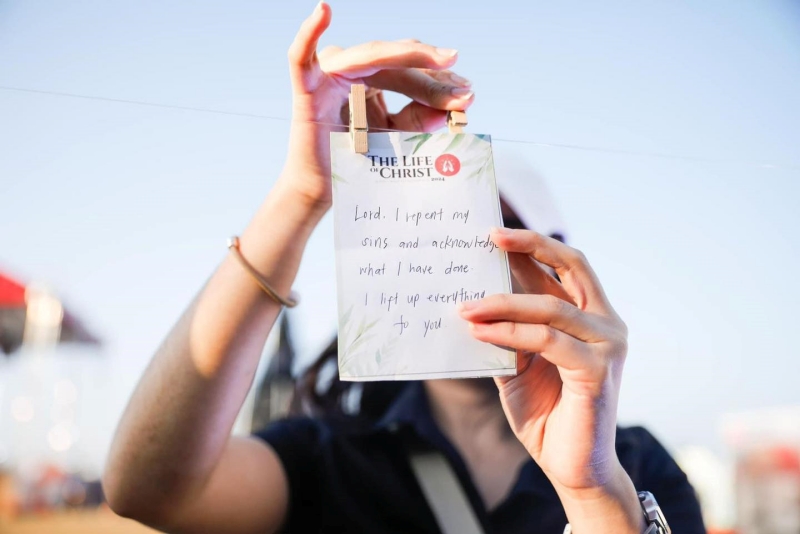 THE LIFE
OF CHRIST
Lord. I repent my
sins and acknowledge
what I have done.
I lift up everything
to you